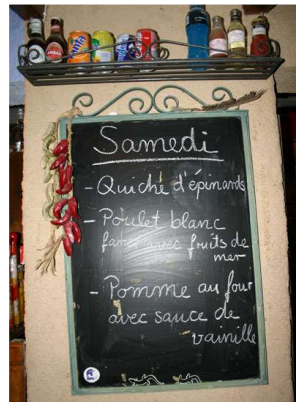 Samedi
- Quiche d'épinards
- Poulet blanc
avec fruits de
mer
- Pomme au four
avec sauce de
vainille